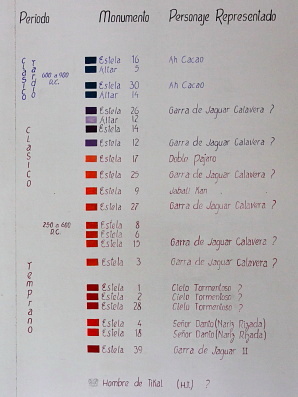 Período Monumento Personaje Representado
Clásico Tardío
600 a 900 D.C.
Estela 16 Ah Cacao
Altar 5
Estela 30 Ah Cacao
Altar 14
Estela 26 Garra de Jaguar Calavera ?
Altar 12
Estela 14
Estela 12 Garra de Jaguar Calavera ?
Estela 17 Doble Pájaro
Estela 25 Garra de Jaguar Calavera ?
Estela 9 Jabalí Kan
Estela 27 Garra de Jaguar Calavera ?
Clásico
250 a 600 D.C.
Estela 8
Estela 6
Estela 15 Garra de Jaguar Calavera ?
Estela 3 Garra de Jaguar Calavera ?
Temprano
Estela 1 Cielo Tormentoso ?
Estela 2 Cielo Tormentoso ?
Estela 28 Cielo Tormentoso ?
Estela 4 Señor Danto (Nariz Rizada)
Estela 18 Señor Danto (Nariz Rizada)
Estela 39 Garra de Jaguar II
Hombre de Tikal (H.T.) ?